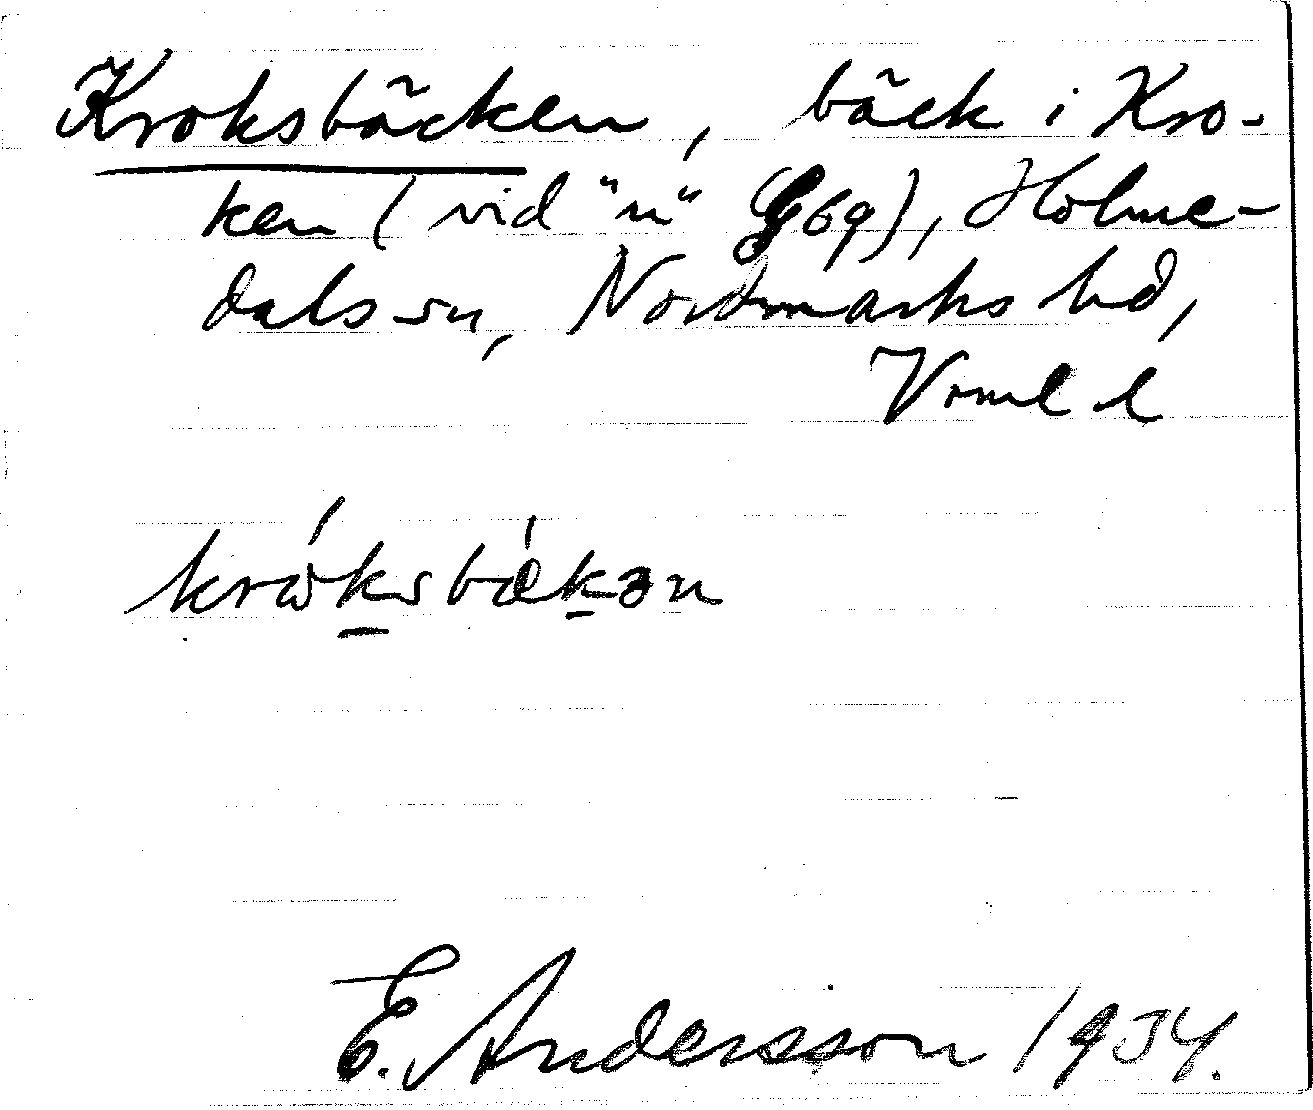 Kroksbäcken, bäck i Kro-
ken (vid "n" G 69), Holme-
dals sn, Nordmarks hd,
Vrml l
króksbǽkən
E. Andersson 1934.